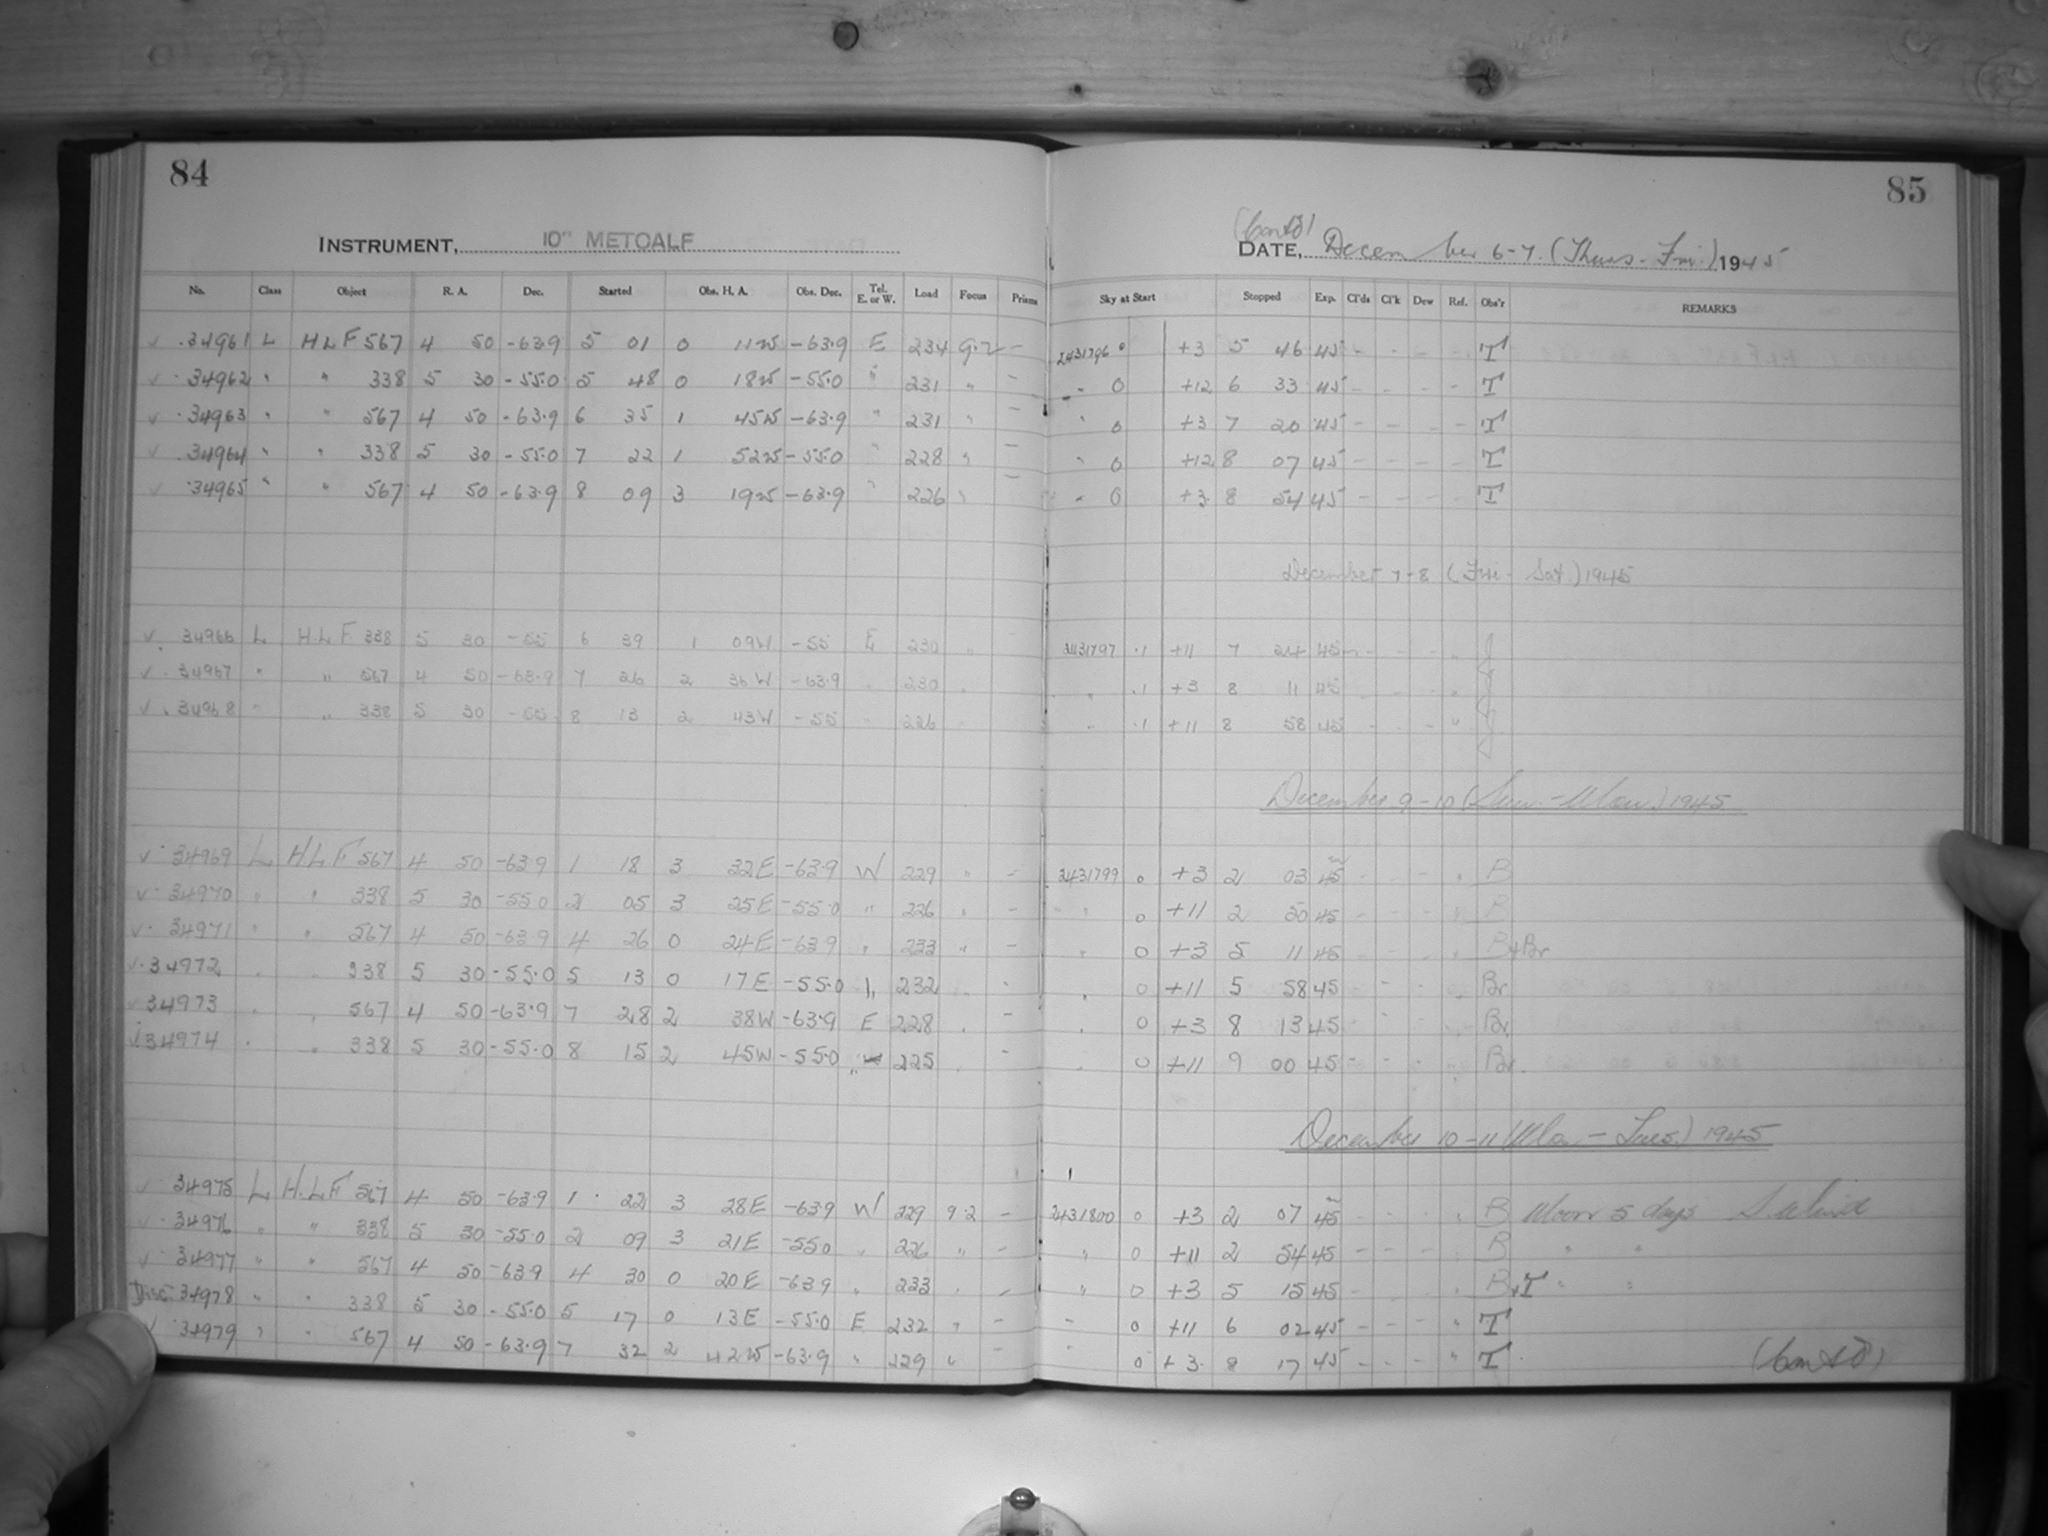 84
85
INSTRUMENT, 10" METCALF
(Cont'd)
DATE, December 6-7. (Thurs-Fri.) 1945
No. Class Object R. A. Dec. Started Obs. H. A. Obs. Dec. Tel. E. or W. Load Focus Prisms Sky at Start Stopped Exp. Cl'ds Cl'k Dew Ref. Obs'r REMARKS
✓ 34961 L H L F 567 4 50 -63.9 5 01 0 11W -63.9 E 234 9.2 - 2431796 0 +3 5 46 45 - - - - T
✓ 34962 " " 338 5 30 -55.0 5 48 0 18W -55.0 " 231 " - " 0 +12 6 33 45 - - - - T
✓ 34963 " " 567 4 50 -63.9 6 35 1 45W -63.9 " 231 " - " 0 +3 7 20 45 - - - - T
✓ 34964 " " 338 5 30 -55.0 7 22 1 52W -55.0 " 228 " - " 0 +12 8 07 45 - - - - T
✓ 34965 " " 567 4 50 -63.9 8 09 3 19W -63.9 " 226 " - " 0 +3 8 54 45 - - - - T
December 7-8 (Fri - Sat.) 1945
✓ 34966 L H.L.F. 338 5 30 -55 6 39 1 09W -55 E 230 " 2431797 .1 +11 7 24 45 - - - "
✓ 34967 " " 567 4 50 -63.9 7 26 2 36W -63.9 " 230 " " .1 +3 8 11 45 - - - "
✓ 34968 " " 338 5 30 -55 8 13 2 43W -55 " 226 " .1 +11 8 58 45 - - - "
December 9-10 (Sun.-Mon.) 1945
✓ 34969 L H L F 567 4 50 -63.9 1 18 3 32E -63.9 W 229 " - 2431799 0 +3 2 03 45 - - - " B
✓ 34970 " " 338 5 30 -55.0 2 05 3 25E -55.0 " 226 " - " 0 +11 2 50 45 - - - " B
✓ 34971 " " 567 4 50 -63.9 4 26 0 24E -63.9 " 233 " - " 0 +3 5 11 45 - - - " B+Br
✓ 34972 " " 338 5 30 -55.0 5 13 0 17E -55.0 " 232 " - " 0 +11 5 58 45 - - - " Br
✓ 34973 " " 567 4 50 -63.9 7 28 2 38W -63.9 E 228 " - " 0 +3 8 13 45 - - - " Br
✓ 34974 " " 338 5 30 -55.0 8 15 2 45W -55.0 " 225 " - " 0 +11 9 00 45 - - - " Br.
December 10-11 (Mon - Tues.) 1945
✓ 34975 L H.L.F 567 4 50 -63.9 1 22 3 28E -63.9 W 229 9.2 - 2431800 0 +3 2 07 45 - - - " B Moon 5 days S. Wind
✓ 34976 " " 338 5 30 -55.0 2 09 3 21E -55.0 " 226 " - " 0 +11 2 54 45 - - - " B " "
✓ 34977 " " 567 4 50 -63.9 4 30 0 20E -63.9 " 233 " - " 0 +3 5 15 45 - - - " B+T " "
Disc. 34978 " " 338 5 30 -55.0 5 17 0 13E -55.0 E 232 " - " 0 +11 6 02 45 - - - " T
✓ 34979 " " 567 4 50 -63.9 7 32 2 42W -63.9 " 229 " - " 0 +3 8 17 45 - - - " T
(Cont'd)